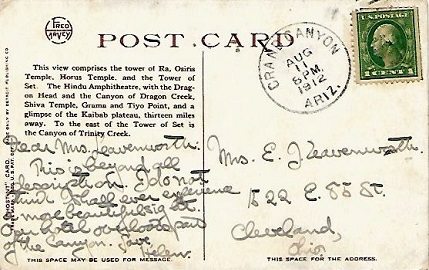 FRED
HARVEY
POST CARD
This view comprises the tower of Ra, Osiris
Temple, Horus Temple, and the Tower of
Set. The Hindu Amphitheatre, with the Drag-
on Head and the Canyon of Dragon Creek,
Shiva Temple, Grama and Tiyo Point, and a
glimpse of the Kaibab plateau, thirteen miles
away. To the east of the Tower of Set is
the Canyon of Trinity Creek.
GRAND CANYON
AUG
11
6 PM
1912
ARIZ.
U.S. POSTAGE
1 CENT 1
Dear Mrs. Leavenworth.
This is beyond all
description. I do not
think I shall ever experience
a more beautiful sight.
Our hotel overlooks part
of the Canyon. Love
Helen.
Mrs. E. J. Leavenworth.
1522 E. 85 St.
Cleveland,
Ohio
THIS SPACE MAY BE USED FOR MESSAGE.
THIS SPACE FOR THE ADDRESS.